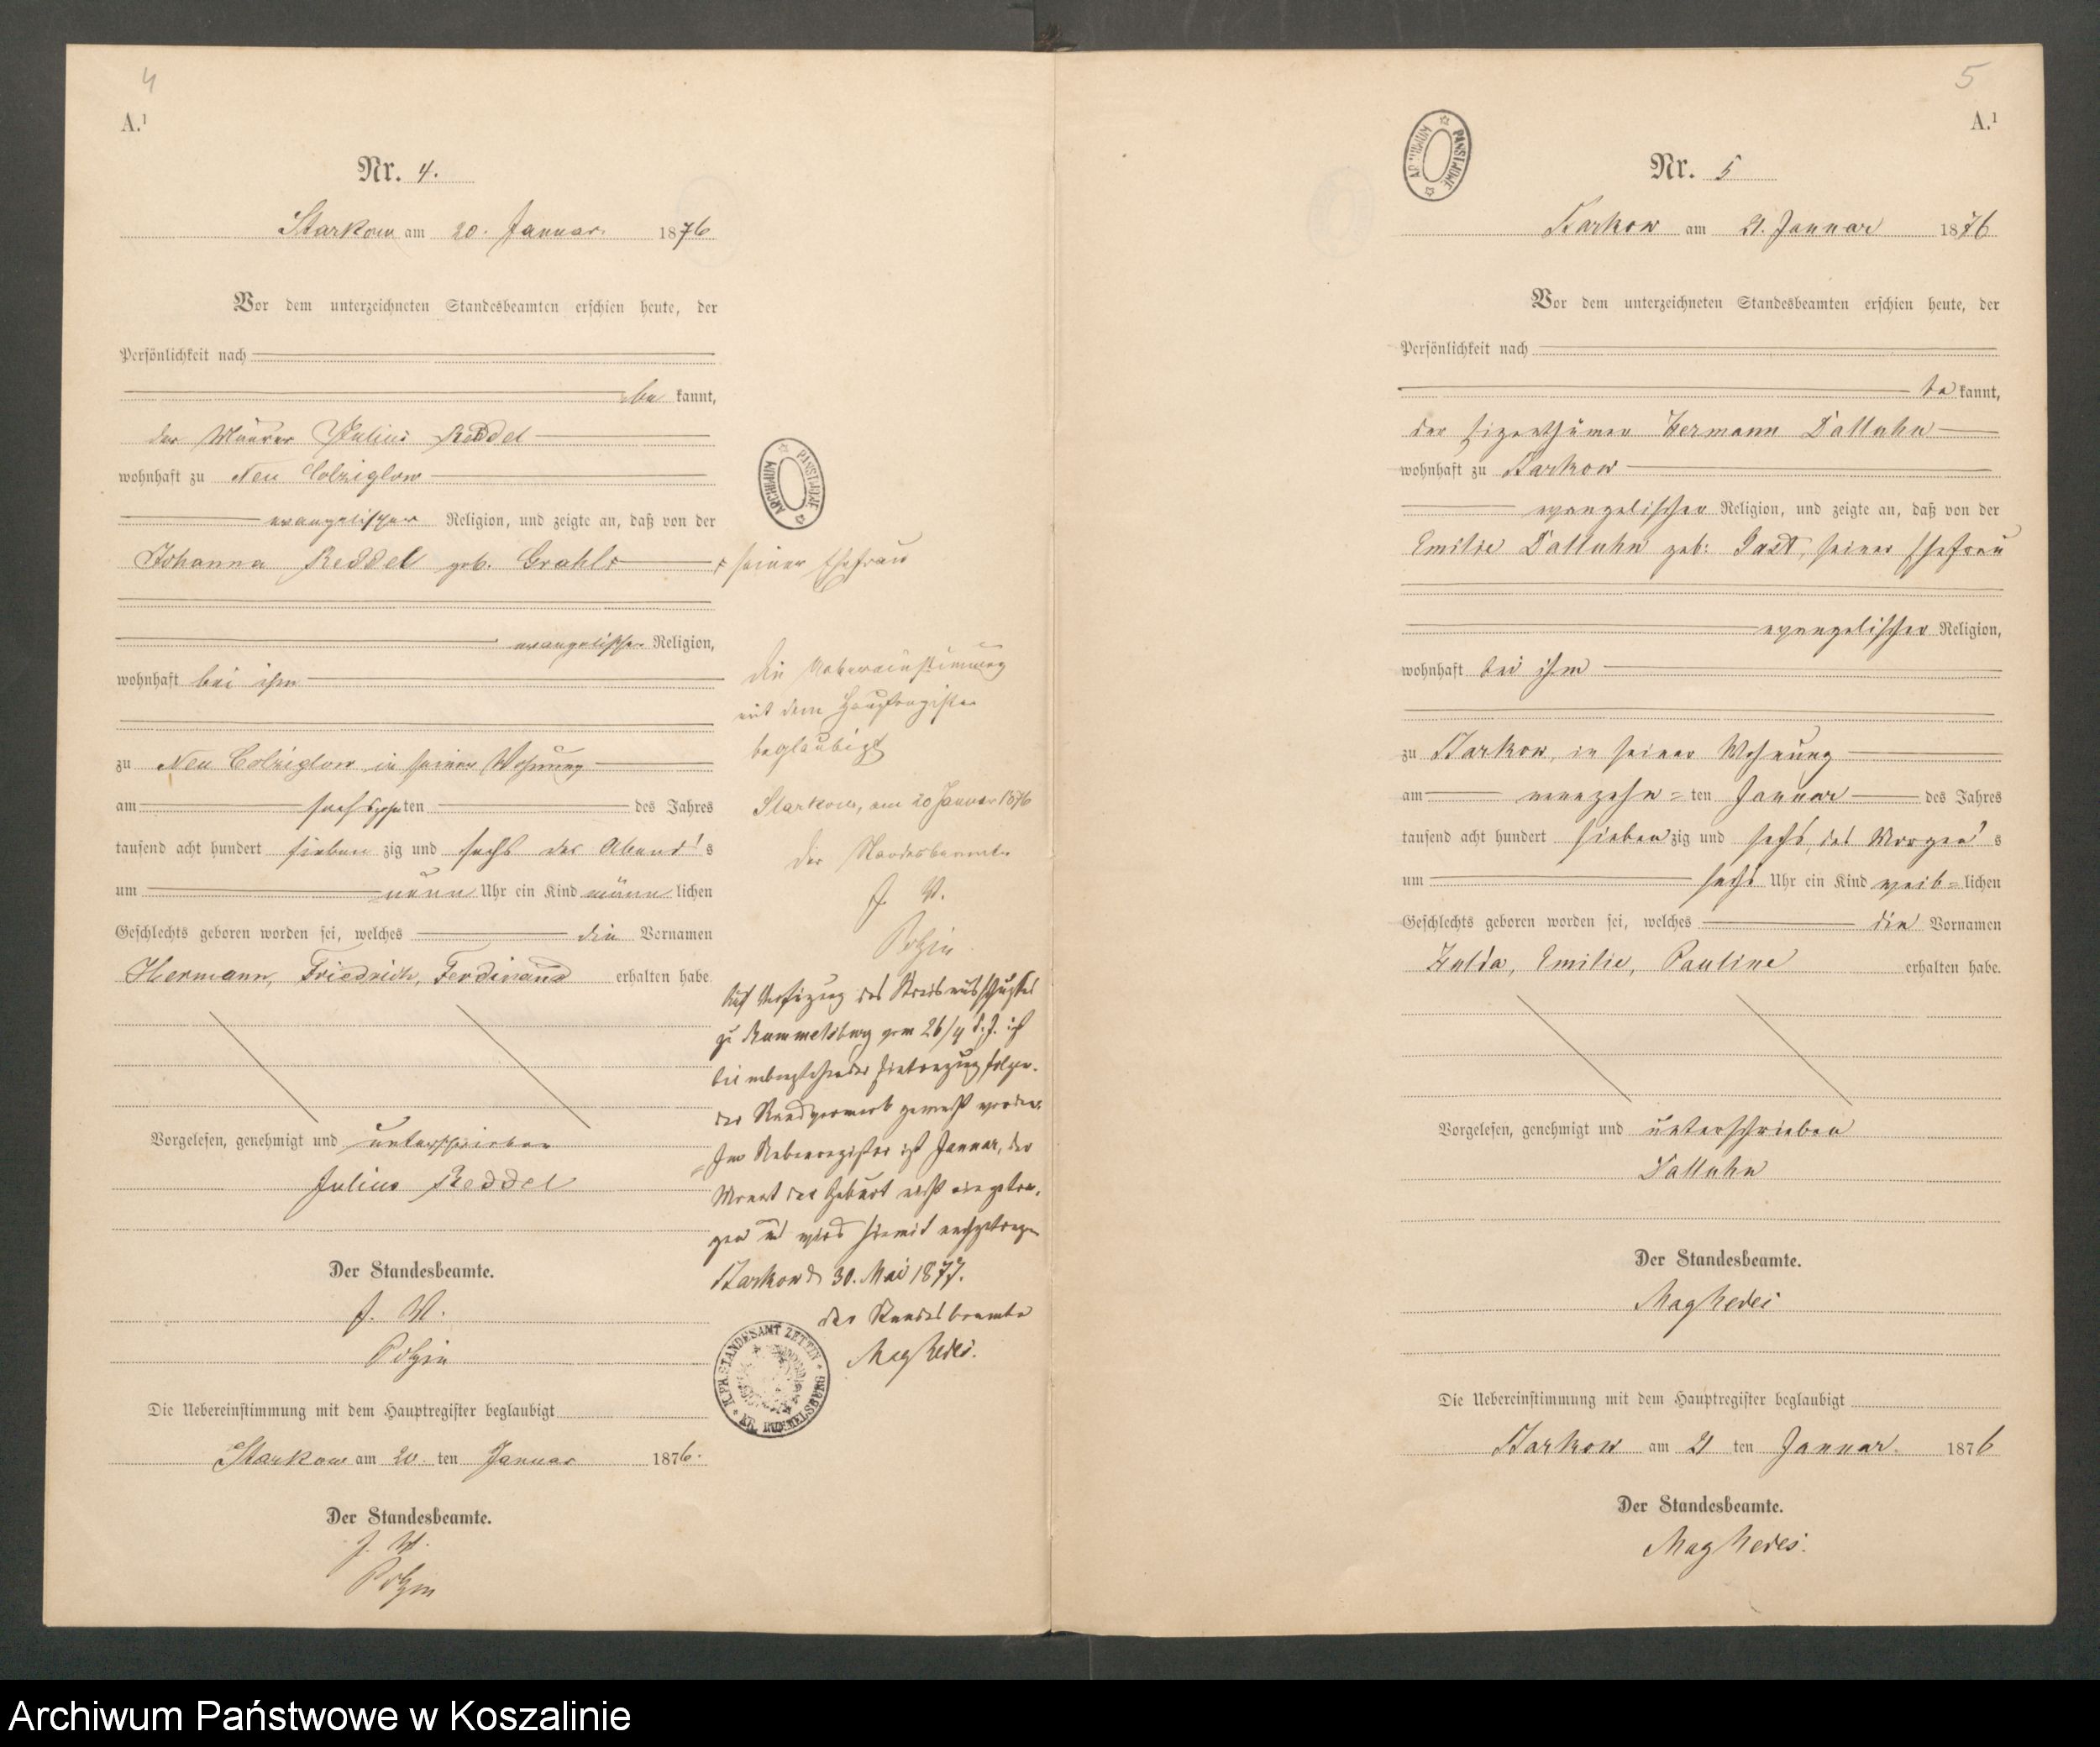 4
A.¹
Nr. 4.
Starkow am 20. Januar. 1876
Vor dem unterzeichneten Standesbeamten erschien heute, der
Persönlichkeit nach
be kannt,
der Maurer Julius Reddel
wohnhaft zu Neu Colziglow
evangelischer Religion, und zeigte an, daß von der
Johanna Reddel geb. seiner Ehefrau
evangelischer Religion,
wohnhaft bei ihm
zu Neu Colziglow in seiner Wohnung
am sechszehnten des Jahres
tausend acht hundert sieben zig und sechs des Abend's
um neun Uhr ein Kind männlichen
Geschlechts geboren worden sei, welches die Vornamen
Hermann, Friedrich, Ferdinand erhalten habe
Vorgelesen, genehmigt und unterschrieben
Julius Reddel
Der Standesbeamte.
J. V.
Polzin
Die Uebereinstimmung mit dem Hauptregister beglaubigt
Starkow am 20. ten Januar 1876.
Der Standesbeamte.
J. V.
Polzin
ARCHIWUM PAŃSTWOWE
Die Uebereinstimmung
mit dem Hauptregister
beglaubigt
Starkow, am 20 Januar 1876
Der Standesbeamte
J. V.
Polzin
Auf Verfügung des Kreisausschußes
zu Rummelsburg vom 26/4 d. J. ist
bei nebenstehender Eintragung folgen-
der Randvermerk gemacht worden.
Im Nebenregister ist Januar, der
Monat der Geburt nicht eingetra-
gen und wird hiermit nachgetragen
Starkow d 30. Mai 1877.
Der Standesbeamte
K. PR. STANDESAMT ZETTIN
KR. RUMMELSBURG
5
A.¹
ARCHIWUM PAŃSTWOWE
Nr. 5
Starkow am 21. Januar 1876
Vor dem unterzeichneten Standesbeamten erschien heute, der
Persönlichkeit nach
be kannt,
der Eigenthümer Hermann Dalluhn
wohnhaft zu Starkow
evangelischer Religion, und zeigte an, daß von der
Emilie Dalluhn geb: Gast, seiner Ehefrau
evangelischer Religion,
wohnhaft bei ihm
zu Starkow, in seiner Wohnung
am neunzehn=ten Januar des Jahres
tausend acht hundert siebenzig und sechs, des Morgen's
um sechs Uhr ein Kind weib=lichen
Geschlechts geboren worden sei, welches die Vornamen
Hulda, Emilie, Pauline erhalten habe.
Vorgelesen, genehmigt und unterschrieben
Dalluhn
Der Standesbeamte.
Die Uebereinstimmung mit dem Hauptregister beglaubigt
Starkow am 21 ten Januar. 1876
Der Standesbeamte.
Archiwum Państwowe w Koszalinie